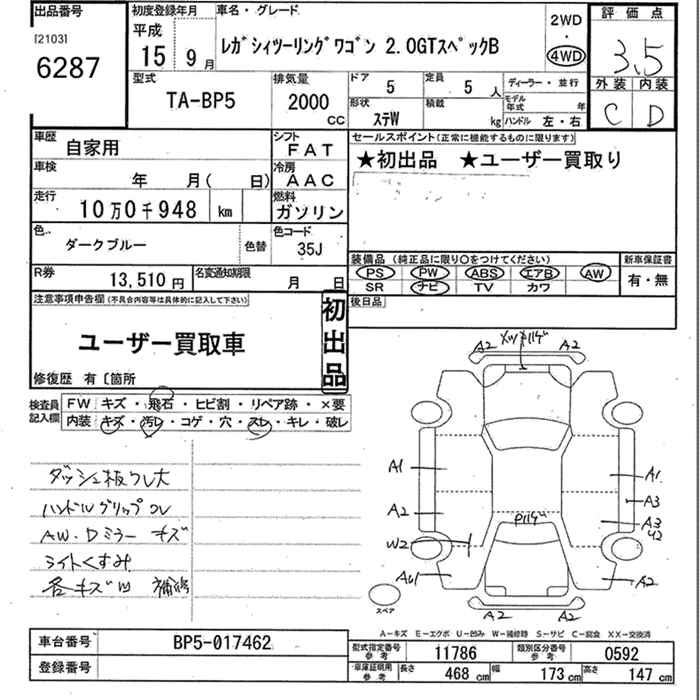 出品番号 初度登録年月 車名・グレード 評価点
[2103] 平成 2WD
6287 15年9月 レガシィツーリングワゴン 2.0GTスペックB 4WD 3.5
型式 排気量 ドア 定員 ディーラー・並行 外装 内装
TA-BP5 2000CC 5 5人 モデル年式 年 C D
形状 積載
ステW kg ハンドル 左・右
車歴 シフト セールスポイント(正常に機能するものに限ります)
自家用 FAT ★初出品 ★ユーザー買取り
車検 冷房
年 月( 日) AAC
走行 燃料
10万0千948 km ガソリン
色 色コード
ダークブルー 色替 35J
装備品(純正品に限り○をつけてください) 新車保証書
R券 名変通知期限 PS PW ABS エアB AW 有・無
13,510円 月 日 SR ナビ TV カワ
注意事項申告欄(不具合内容等は具体的に記入して下さい) 後日品
ユーザー買取車 初出品
修復歴 有〔箇所
検査員記入欄 FW キズ・飛石・ヒビ割・リペア跡・×要
内装 キズ・汚レ・コゲ・穴・スレ・キレ・破レ
ダッシュ板ワレ大
ハンドルグリップコレ
AW・Dミラー キズ
ライトくすみ
各キズ凹 補修
A2 A2
A1 A1
A3
A2 A3
42
W2
A2
A2 A2
スペア
A-キズ E-エクボ U-凹み W-補修時 S-サビ C-腐食 XX-交換済
車台番号 BP5-017462 型式指定番号 参考 11786 類別区分番号 参考 0592
登録番号 車庫証明用 参考 長さ 468cm 幅 173cm 高さ 147cm